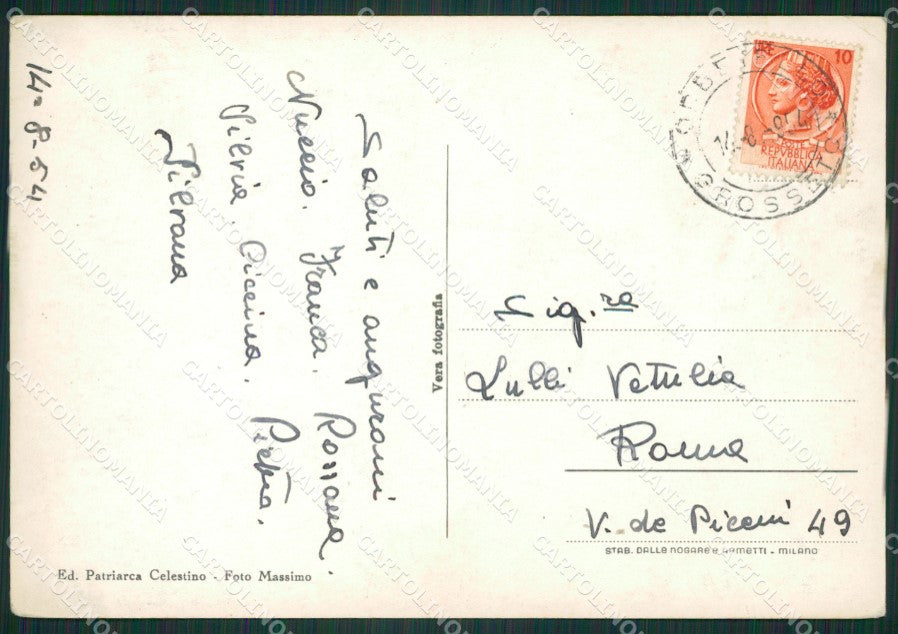 14-8-54
Saluti e auguroni
Nuccio. Franca. Rossana.
Silvia. Ciccina. Pietra.
Silvana
Vera fotografia
Ed. Patriarca Celestino - Foto Massimo
LIRE 10
POSTE
REPVBBLICA
ITALIANA
GROSSETO
Sig.ra
Lulli Vetulia
Roma
V. de Piceni 49
STAB. DALLE NOGARE E ARMETTI - MILANO
CARTOLINOMANIA